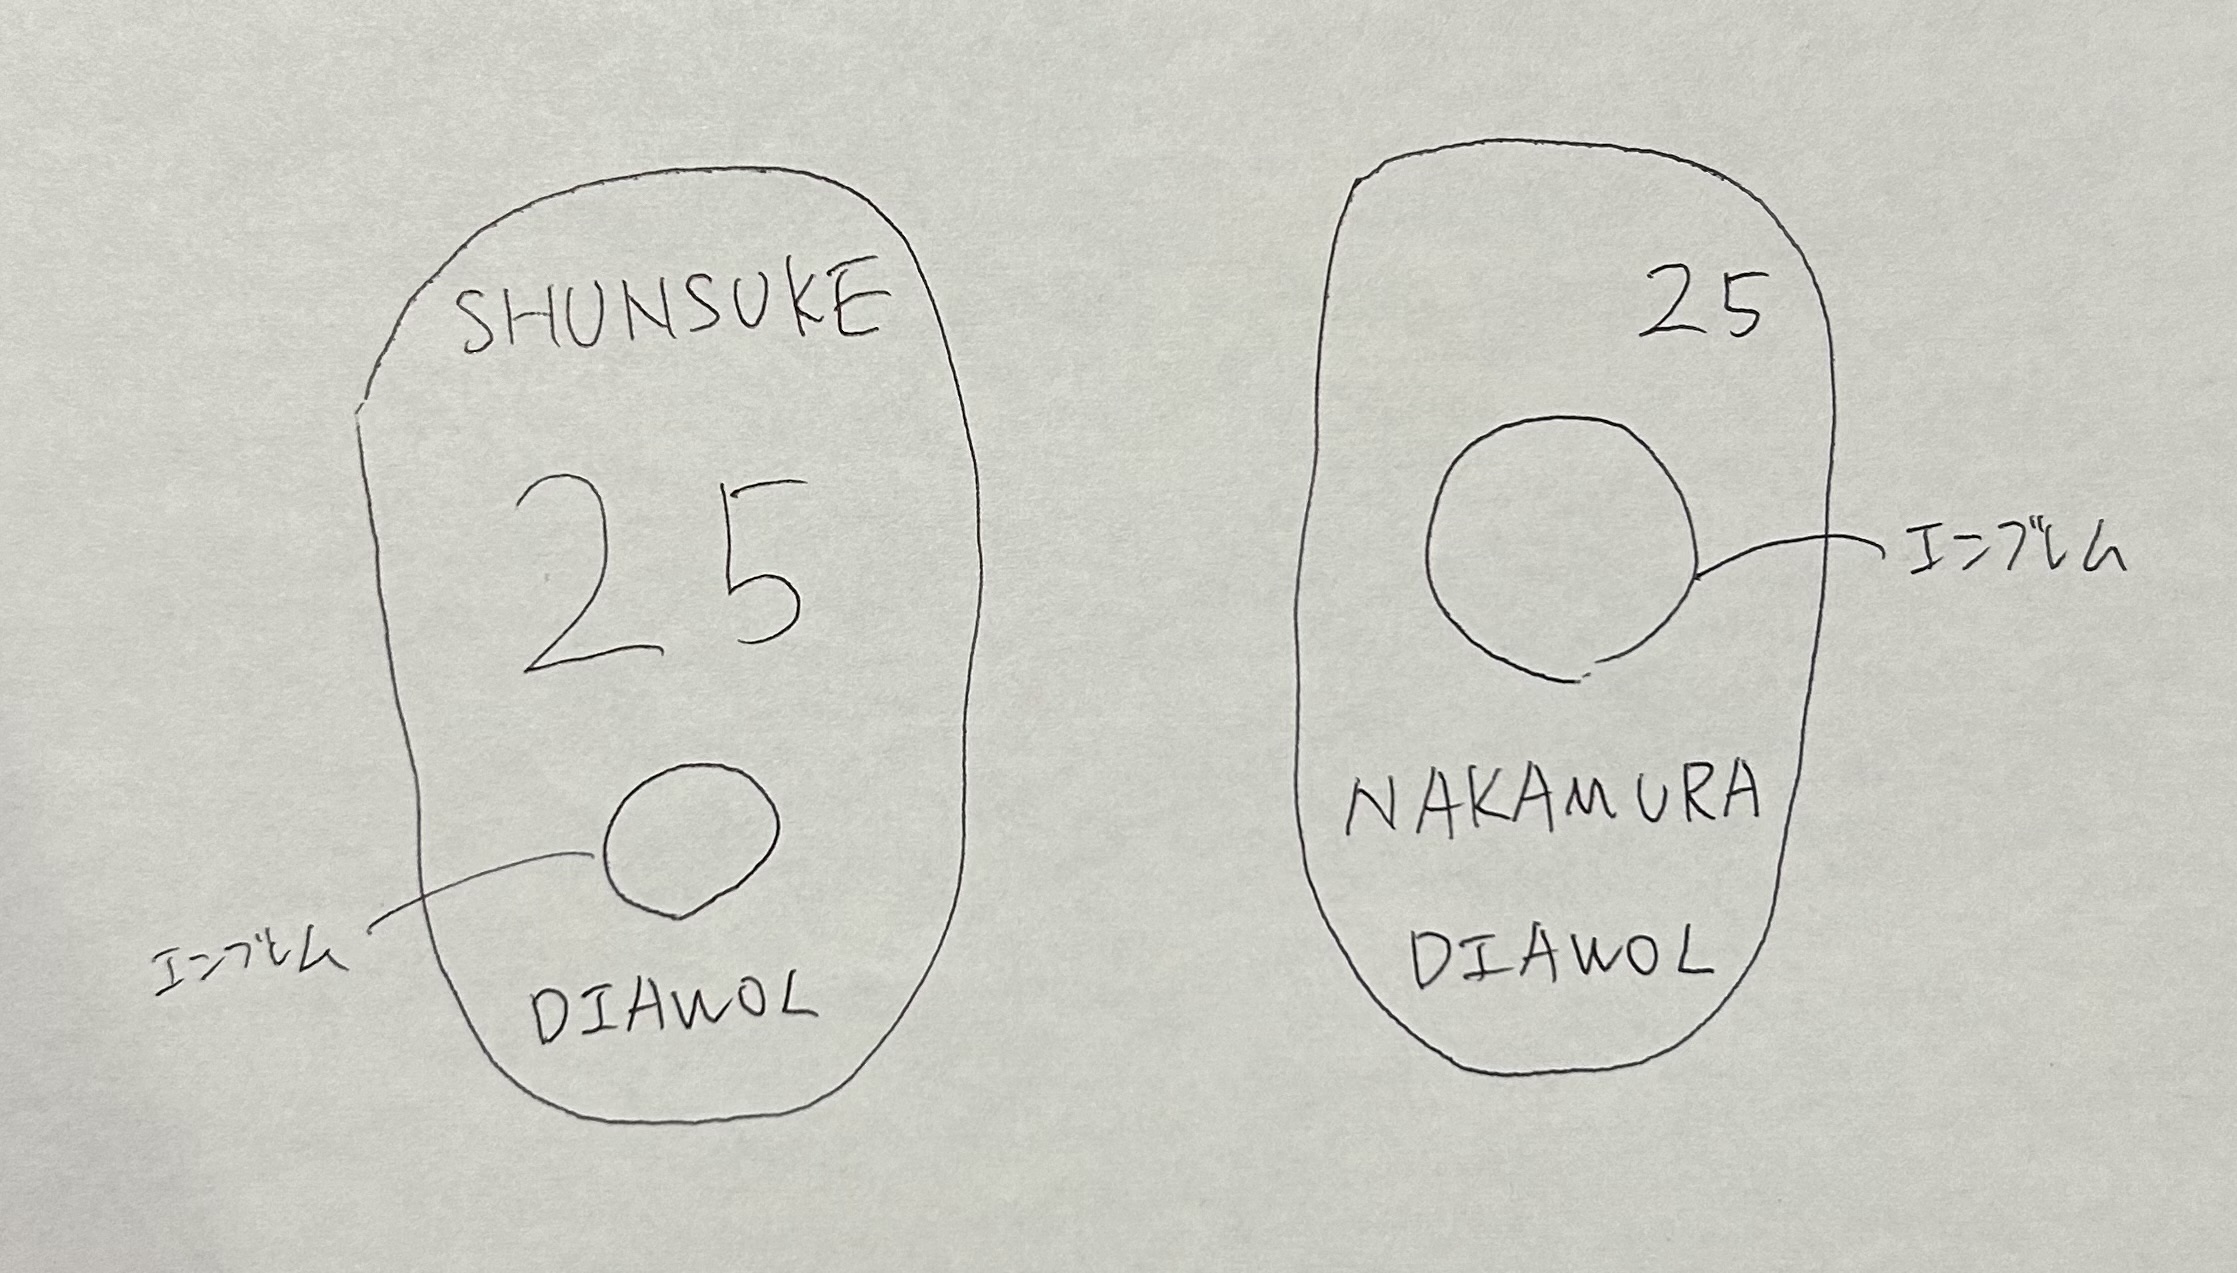 SHUNSUKE
25
エンブレム
DIAWOL
25
エンブレム
NAKAMURA
DIAWOL